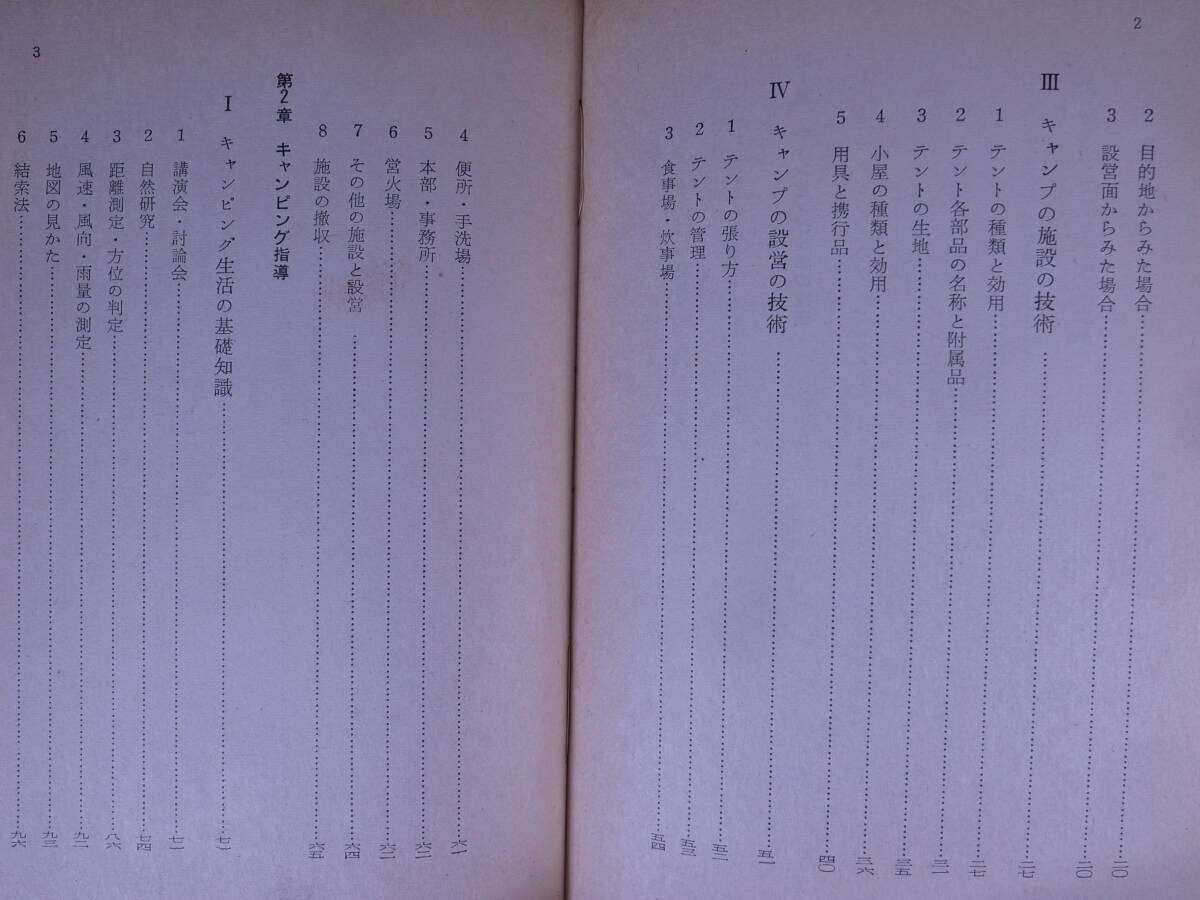 2
2 目的地からみた場合……二〇
3 設営面からみた場合……二〇
Ⅲ キャンプの施設の技術……二七
1 テントの種類と効用……二七
2 テント各部品の名称と附属品……三一
3 テントの生地……三五
4 小屋の種類と効用……三六
5 用具と携行品……四〇
Ⅳ キャンプの設営の技術……五一
1 テントの張り方……五二
2 テントの管理……五三
3 食事場・炊事場……五四
4 便所・手洗場……六一
5 本部・事務所……六二
6 営火場……六二
7 その他の施設と設営……六四
8 施設の撤収……六五
第2章 キャンピング指導
Ⅰ キャンピング生活の基礎知識……七一
1 講演会・討論会……七一
2 自然研究……七四
3 距離測定・方位の判定……八六
4 風速・風向・雨量の測定……九二
5 地図の見かた……九三
6 結索法……九六
3